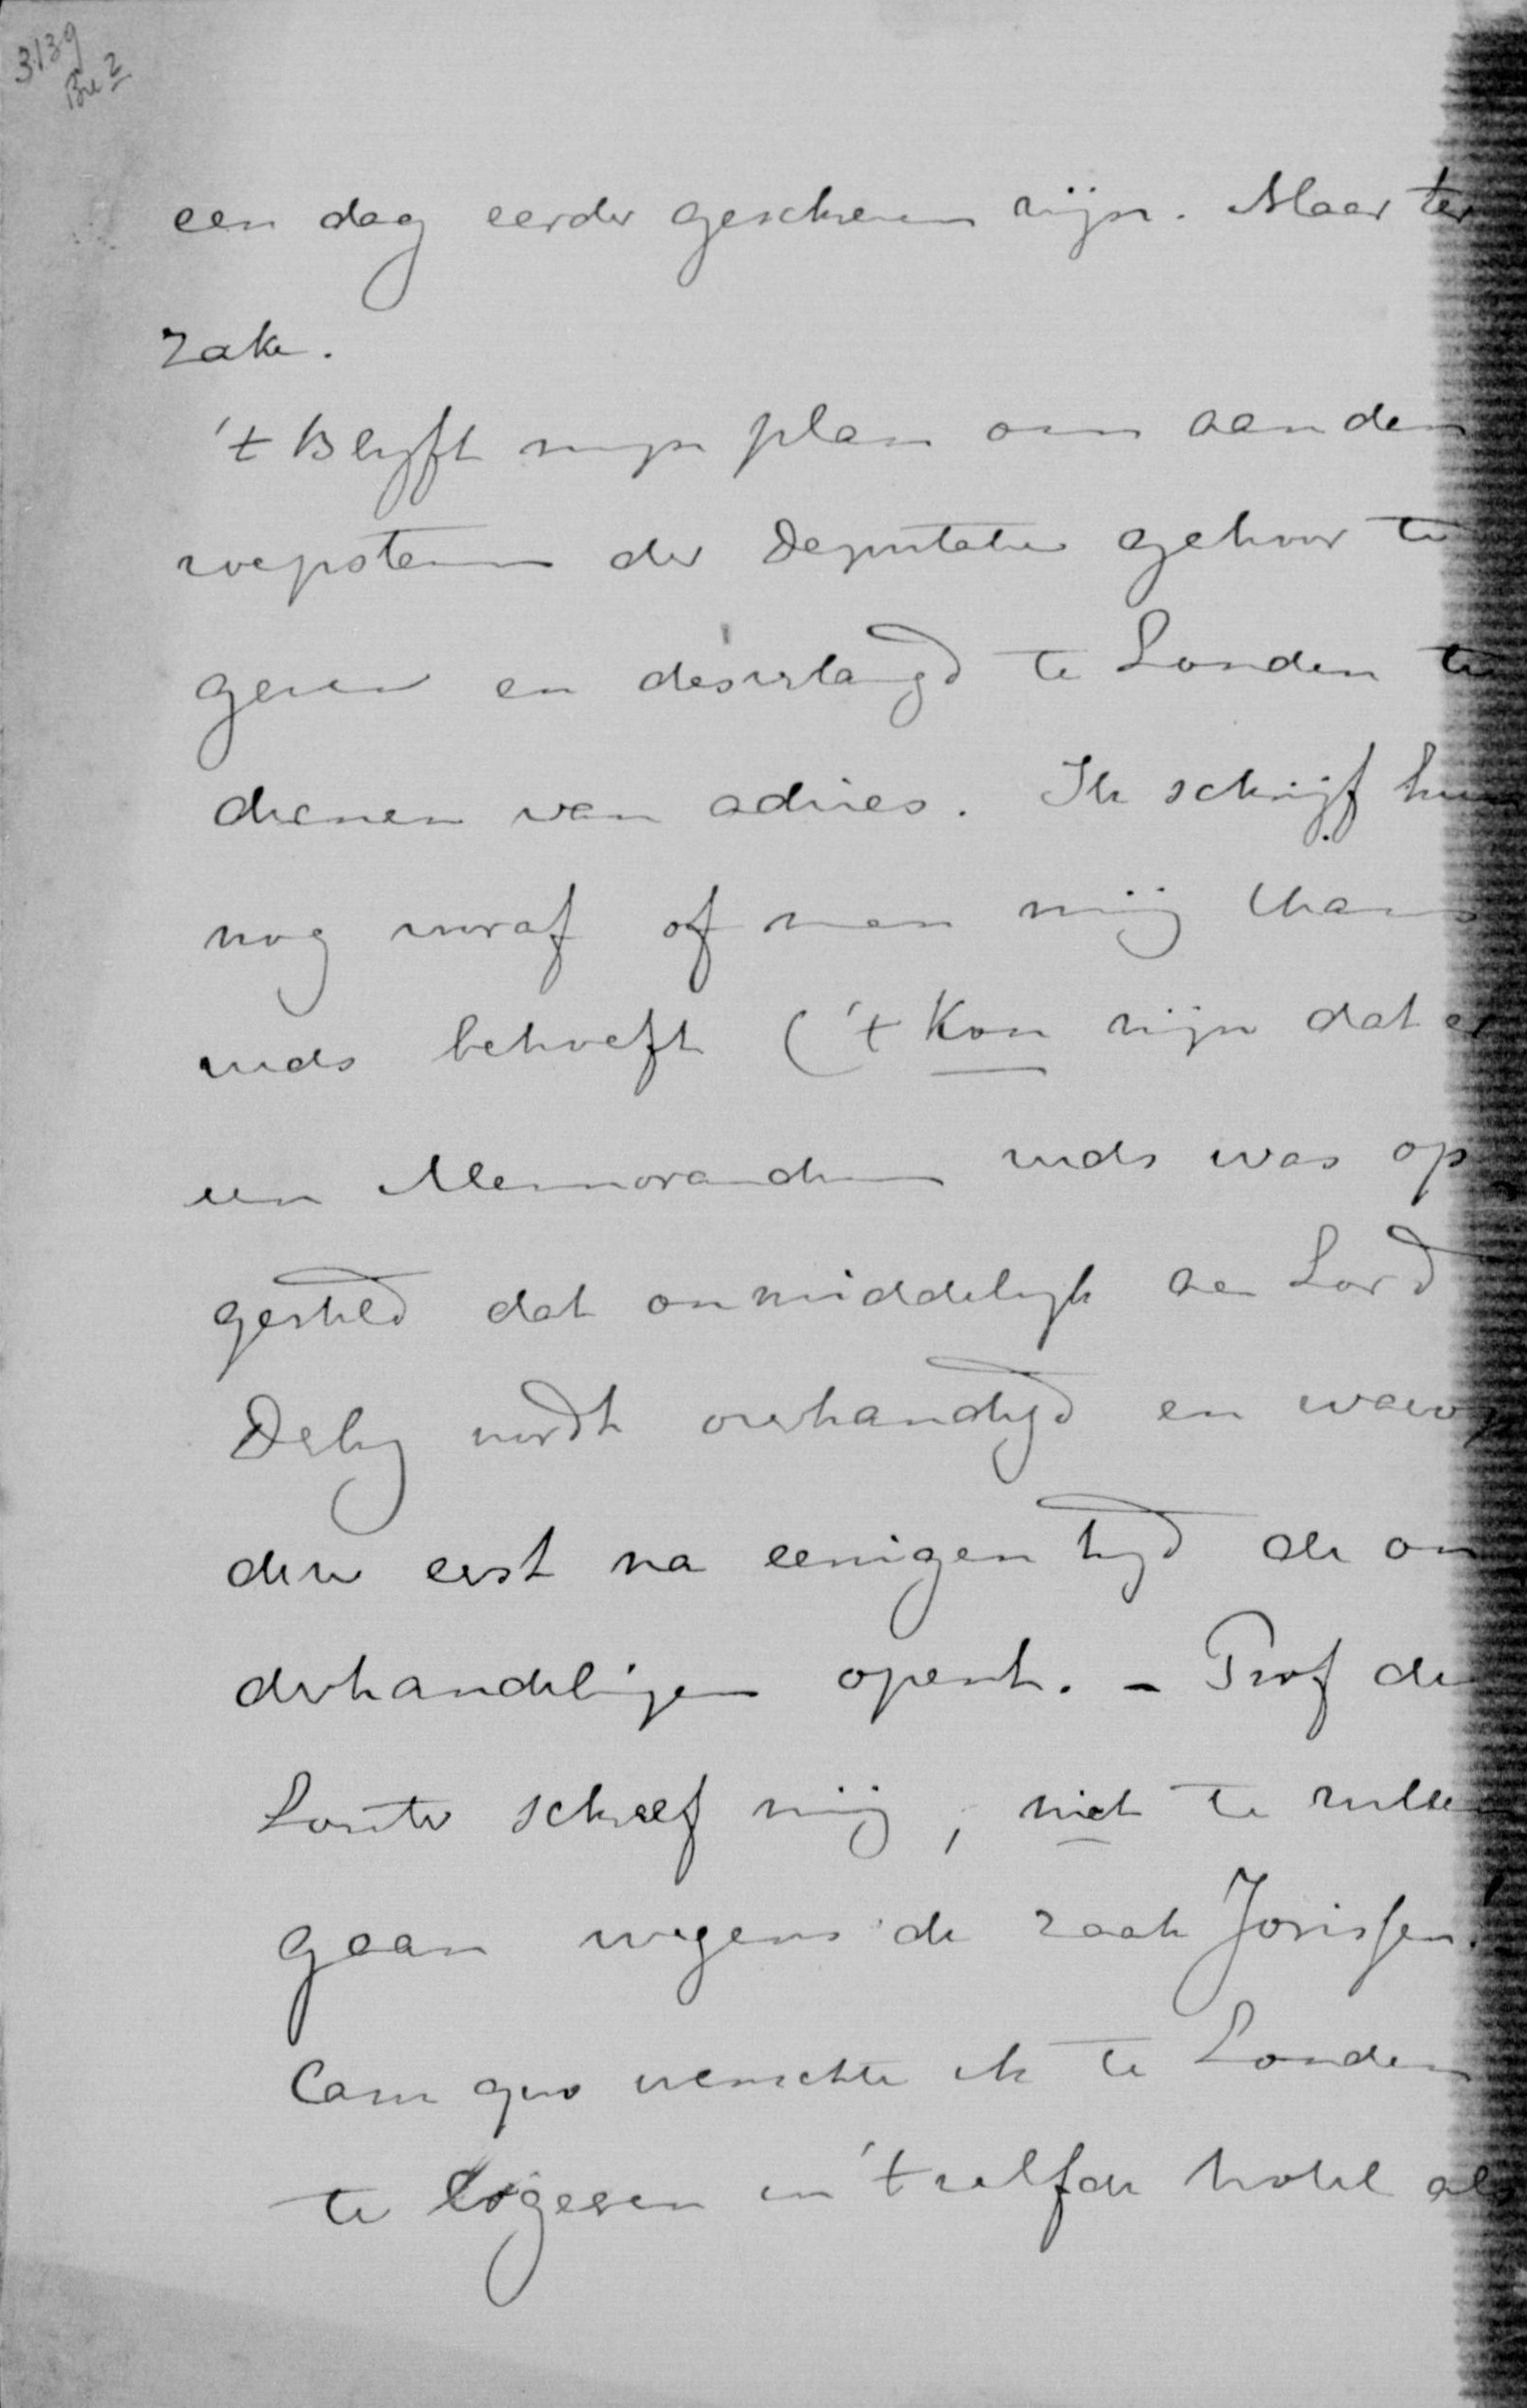 3139
Bre 2
een dag eerder geschreven zijn. Maar ter
zake.
't Blyft myn plan om aan den
roepstem der Deputatie gehoor te
geven en desverlangd te Londen te
dienen van advies. Ik schrijf hun
nog vooraf of men mij thans
reeds behoeft ('t kon zijn dat er
een Memorandum reeds was op
gesteld dat onmiddelyk aan Lord
Derby wordt overhandigd en waarop
deze eerst na eenigen tyd de on
derhandelingen opent. - Prof de
Louter schreef mij, niet te zullen
gaan wegens de zaak Jorissen!
Casu quo wenschte ik te Londen
te logeeren in 't zelfde hotel als